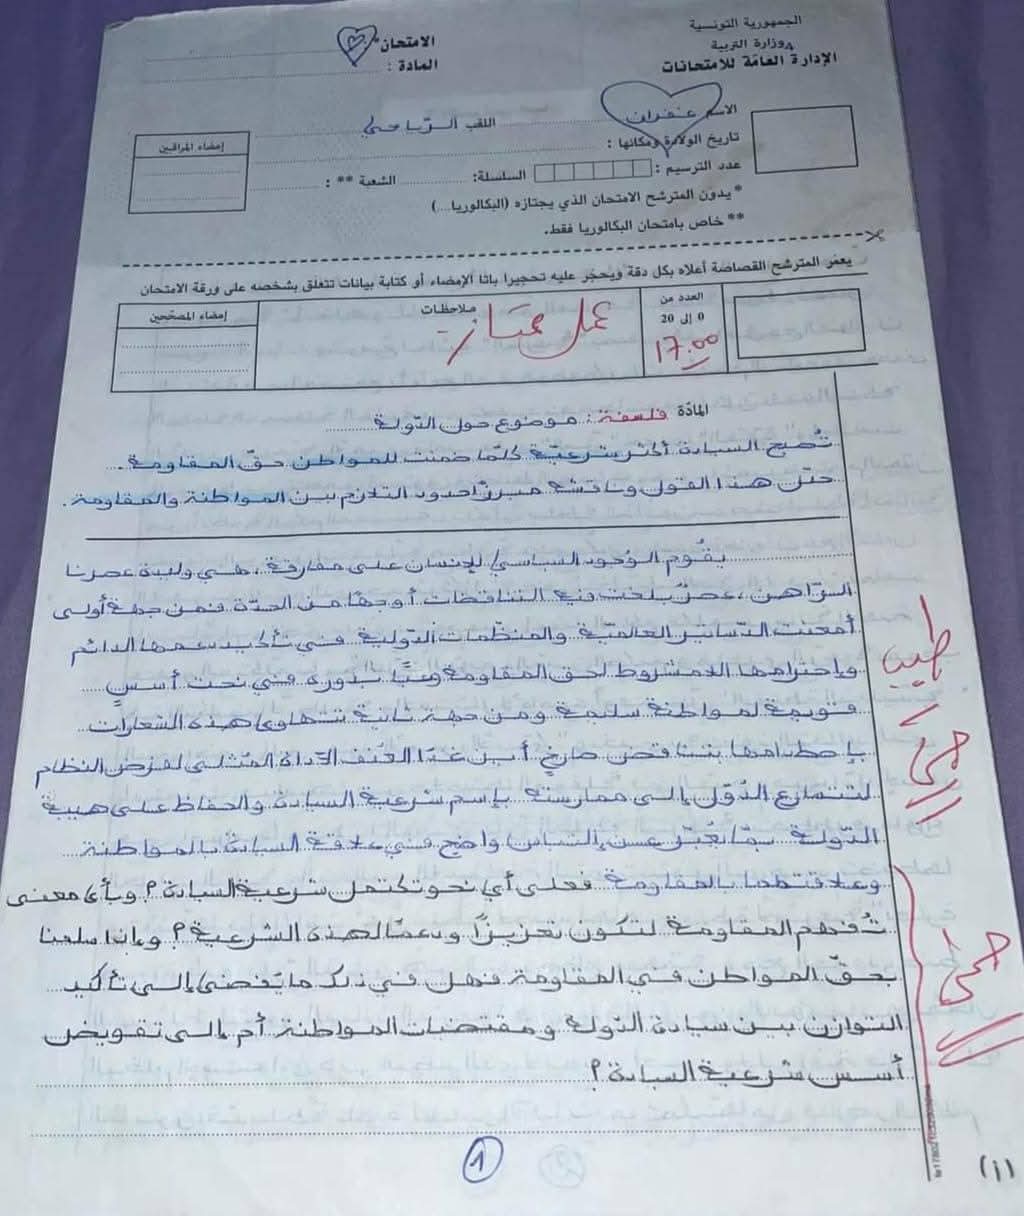 الجمهورية التونسية
وزارة التربية
الإدارة العامة للامتحانات
الامتحان*:
المادة :
الاسم غفران
اللقب الرياحي
تاريخ الولادة ومكانها :
عدد الترسيم :
السلسلة:
الشعبة ** :
إمضاء المراقبين
* يدون المترشح الامتحان الذي يجتازه (البكالوريا...)
** خاص بامتحان البكالوريا فقط.
يعمّر المترشح القصاصة أعلاه بكل دقة ويحجّر عليه تحجيرا باتا الإمضاء أو كتابة بيانات تتعلق بشخصه على ورقة الامتحان
العدد من
0 إلى 20
17.00
ملاحظات
عمل ممتاز
إمضاء المصححين
المادّة فلسفة: موضوع حول الدّولة
تُصبح السيادة أكثر شرعيّة كلّما ضمنت للمواطن حقّ المقاومة.
حلّل هذا القول وناقشه مبرزا حدود التلازم بين المواطنة والمقاومة.
يقُوم الوُجود السياسي للإنسان على مفارقة، هي وليدة عصرنا
الرّاهن، عصرٌ بلغت فيه التناقضات أوجها من الحدّة فمن جهة أولى
أمعنت الدّساتير العالميّة والمنظّمات الدّولية في تأكيد دعمها الدائم
وإحترامها اللامشروط لحق المقاومة وعيًا بدوره في نحت أسسٍ
قويمة لمواطنة سليمة ومن جهة ثانية تتهاوى هذه الشعارات
بإصطدامها بتناقض صارخٍ أين غدَا العنف الأداة المُثلى لفرض النظام
لتتسارع الدّول إلى ممارسته بإسم شرعية السيادة والحفاظ على هيبة
الدّولة ممّا يُعبّر عن إلتباس واضح في علاقة السيادة بالمواطنة
وعلاقتهما بالمقاومة فعلى أي نحو تكتمل شرعية السيادة؟ وبأي معنى
تُفهم المقاومة لتكون تعزيزًا ودعمًا لهذه الشرعية؟ وإذا سلمنا
بحقّ المواطن في المقاومة فهل في ذلك ما يُفضي إلى تأكيد
التوازن بين سيادة الدّولة ومقتضيات المواطنة أم إلى تقويض
أسس شرعية السيادة؟
طيب
1
(i)